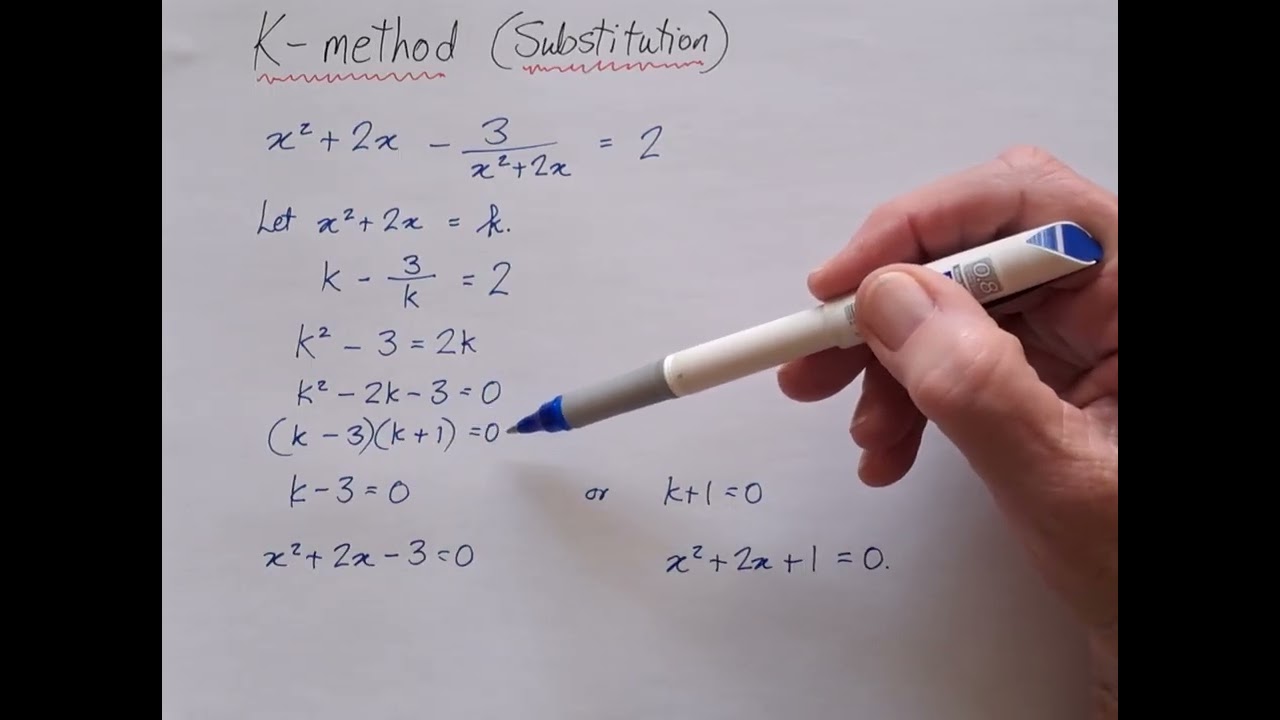 K-method (Substitution)
x² + 2x - 3/(x² + 2x) = 2
Let x² + 2x = k.
k - 3/k = 2
k² - 3 = 2k
k² - 2k - 3 = 0
(k - 3)(k + 1) = 0
k - 3 = 0 or k + 1 = 0
x² + 2x - 3 = 0 x² + 2x + 1 = 0.
0.8